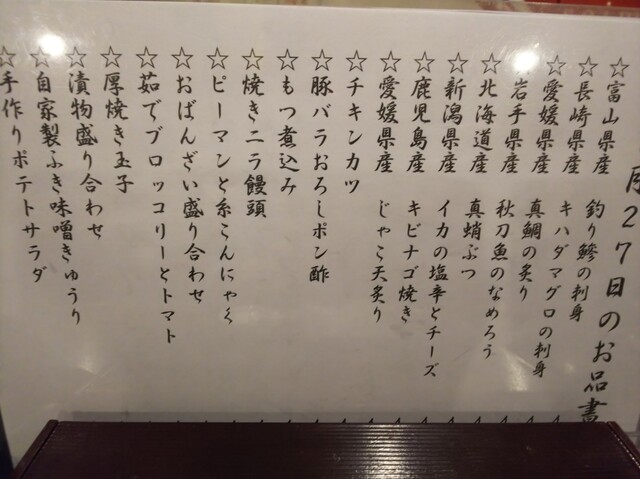 月27日のお品書
☆富山県産 釣り鯵の刺身
☆長崎県産 キハダマグロの刺身
☆愛媛県産 真鯛の炙り
☆岩手県産 秋刀魚のなめろう
☆北海道産 真蛸ぶつ
☆新潟県産 イカの塩辛とチーズ
☆鹿児島産 キビナゴ焼き
☆愛媛県産 じゃこ天炙り
☆チキンカツ
☆豚バラおろしポン酢
☆もつ煮込み
☆焼きニラ饅頭
☆ピーマンと糸こんにゃく
☆おばんざい盛り合わせ
☆茹でブロッコリーとトマト
☆厚焼き玉子
☆漬物盛り合わせ
☆自家製ふき味噌きゅうり
☆手作りポテトサラダ